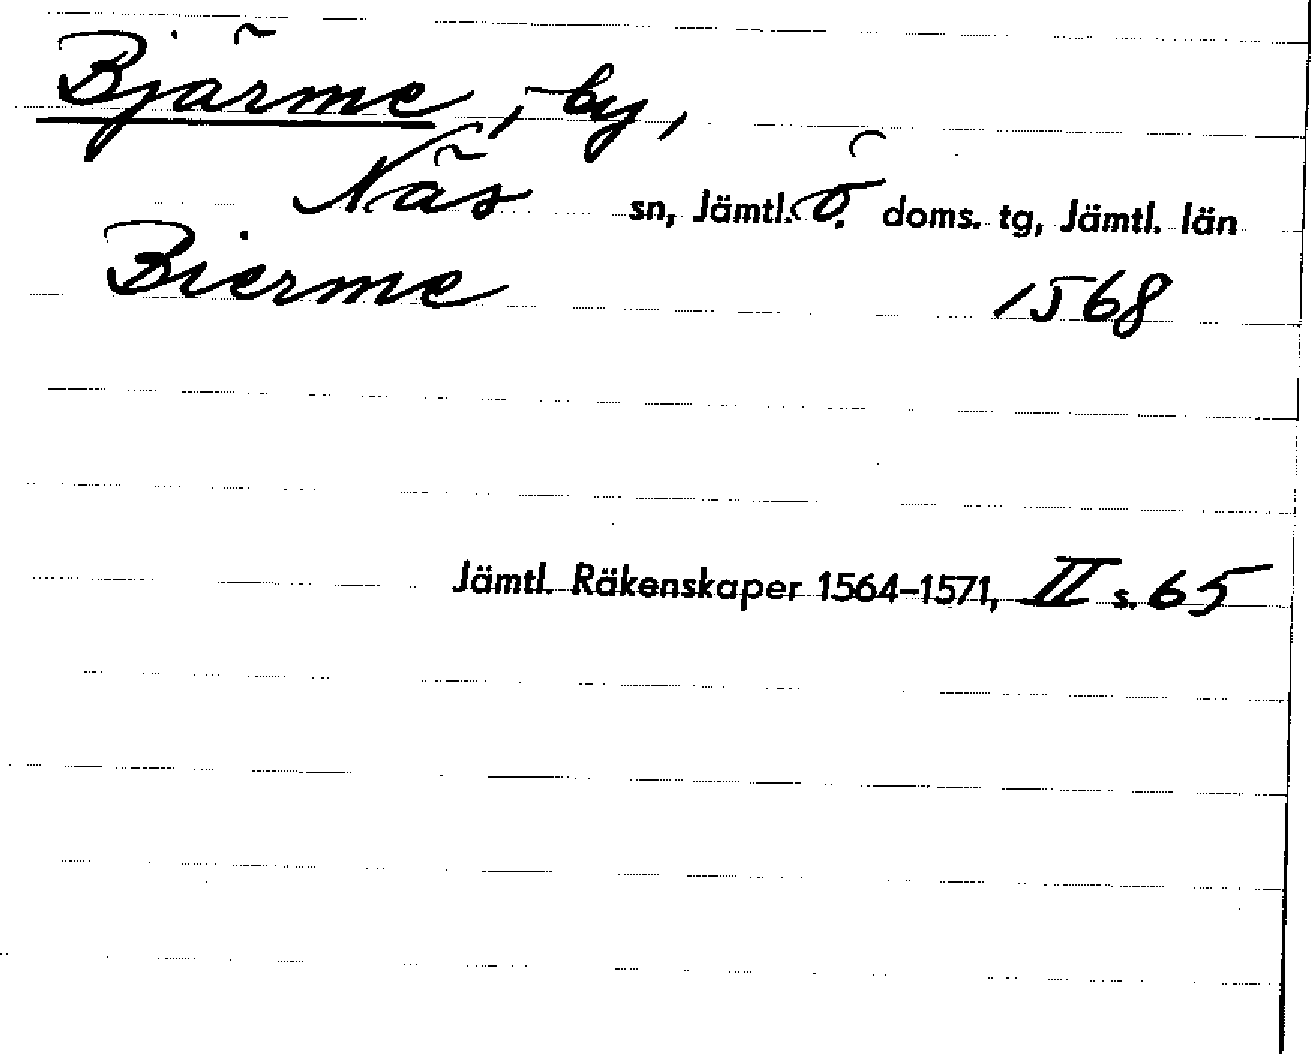 Bjärme, by,
Näs sn, Jämtl. ö. doms. tg, Jämtl. län
Bierme 1568
Jämtl. Räkenskaper 1564-1571, II s. 65